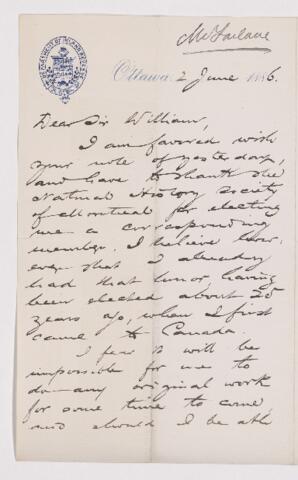 McFarlane
DEPARTMENT OF INLAND REVENUE
Ottawa 2 June 1886.
Dear Sir William,
I am favored with
your note of yesterday,
and have to thank the
Natural History Society
of Montreal for electing
me a corresponding
member. I believe how-
ever that I already
had that honor, having
been elected about 25
years ago, when I first
came to Canada.
I fear it will be
impossible for me to
do any original work
for some time to come
and should I be able